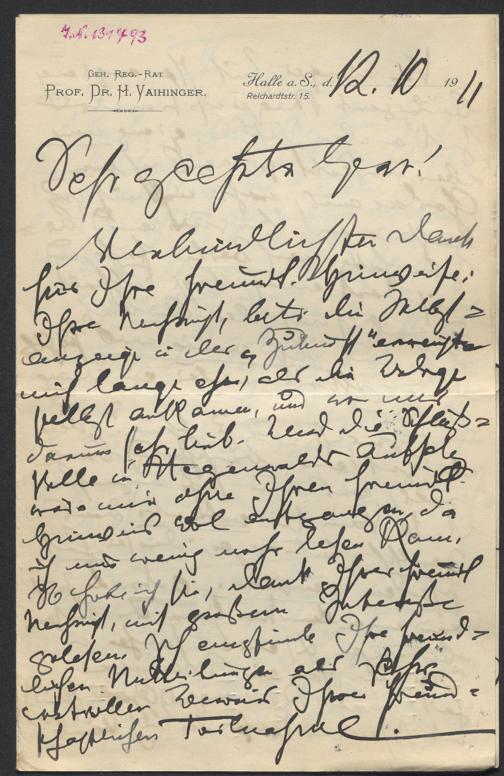 I.N. 131793
GEH. REG.-RAT
PROF. DR. H. VAIHINGER.
Halle a. S., d. 12. 10 1911
Reichardtstr. 15.
Sehr geehrter Herr!
Verbindlichsten Dank
für Ihre freundl. Hinweise.
Ihre Nachricht, betr. die Selbst=
anzeige in der „Zukunft" erreichte
mich lange ehe, als die Belege
selbst ankamen, und war mir
darum sehr lieb. Und die Schluß=
stelle in
wäre mir ohne Ihren freundl.
Hinweis wol entgangen, da
ich nur wenig mehr lesen kann.
So habe ich sie, dank Ihrer freundl
Nachricht, mit großem Interesse
gelesen. Ich empfinde Ihre freund=
lichen Mitteilungen als sehr
wertvollen Beweis Ihrer freund=
schaftlichen Teilnahme.